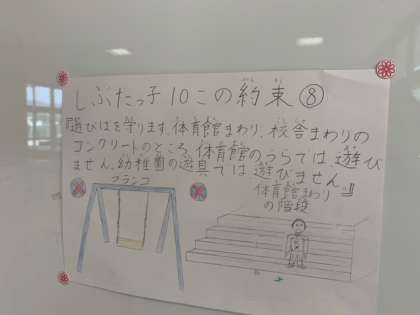 しぶたっ子10この約束⑧
『遊びばを守ります。体育館まわり、校舎まわりの
コンクリートのところ、体育館のうらでは遊び
ません。幼稚園の遊具では遊びません。』
ブランコ
体育館まわり
の階段